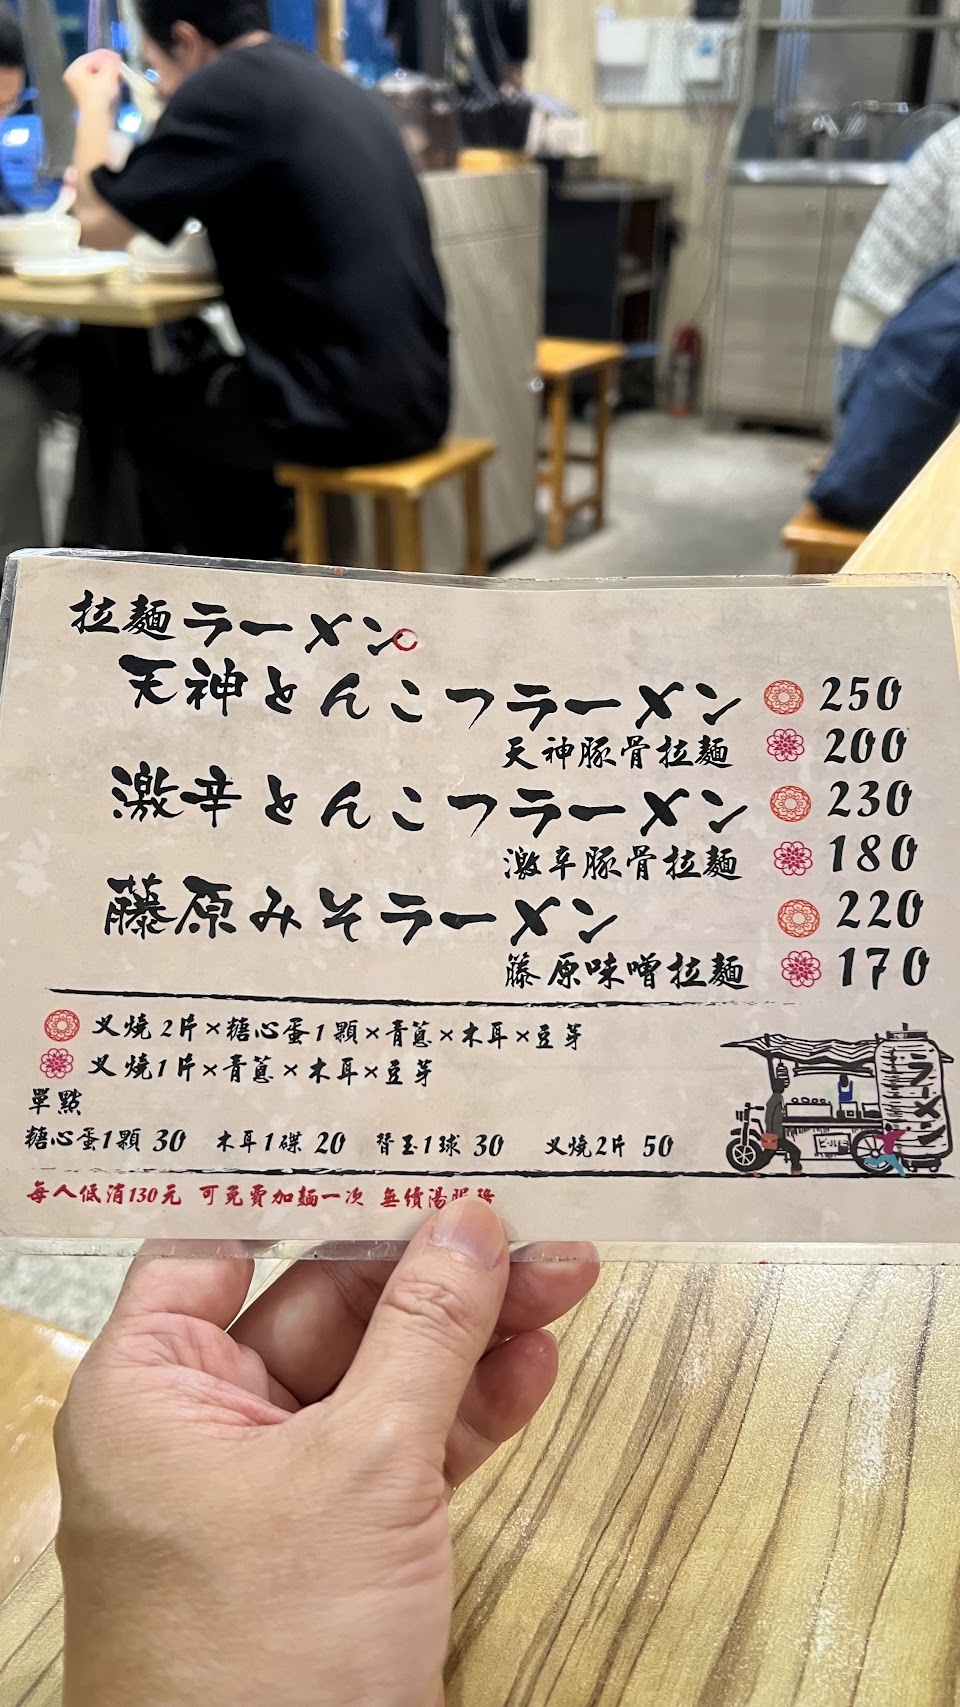 拉麵ラーメン
天神とんこつラーメン 250
天神豚骨拉麵 200
激辛とんこつラーメン 230
激辛豚骨拉麵 180
藤原みそラーメン 220
籐原味噌拉麵 170
叉燒2片×糖心蛋1顆×青蔥×木耳×豆芽
叉燒1片×青蔥×木耳×豆芽
單點
糖心蛋1顆 30 木耳1碟 20 替玉1球 30 叉燒2片 50
每人低消130元 可免費加麵一次 無續湯服務
ラーメン
ビール